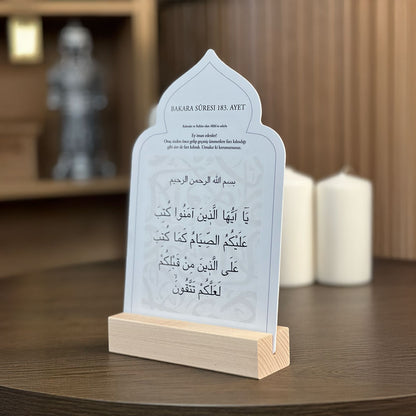 BAKARA SÛRESİ 183. AYET
Ey iman edenler!
Oruç sizden önce gelip geçmiş ümmetlere farz kılındığı
gibi size de farz kılındı. Umulur ki korunursunuz.
بسم الله الرحمن الرحيم
يَا أَيُّهَا الَّذِينَ آمَنُوا كُتِبَ
عَلَيْكُمُ الصِّيَامُ كَمَا كُتِبَ
عَلَى الَّذِينَ مِنْ قَبْلِكُمْ
لَعَلَّكُمْ تَتَّقُونَ